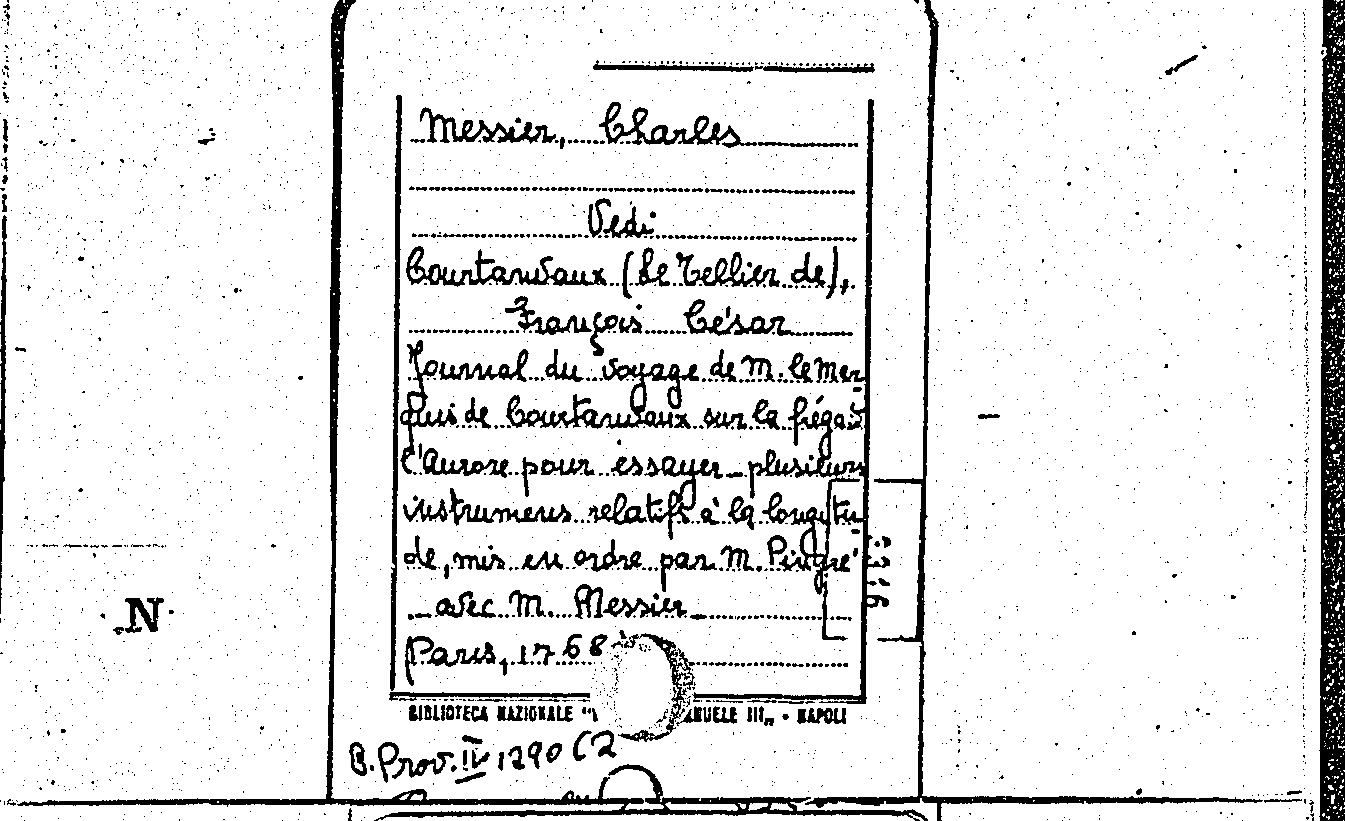 Messier, Charles
Vedi
Courtanvaux (Le Tellier de),
François César
Journal du voyage de M. le Mar-
quis de Courtanvaux sur la frégat
l'Aurore pour essayer plusieurs
instrumens relatifs à la longitu-
de, mis en ordre par M. Pingré
avec M. Messier
Paris, 1768
BIBLIOTECA NAZIONALE "V ANUELE III„ - NAPOLI
B. Prov. IV 1290 (2
N